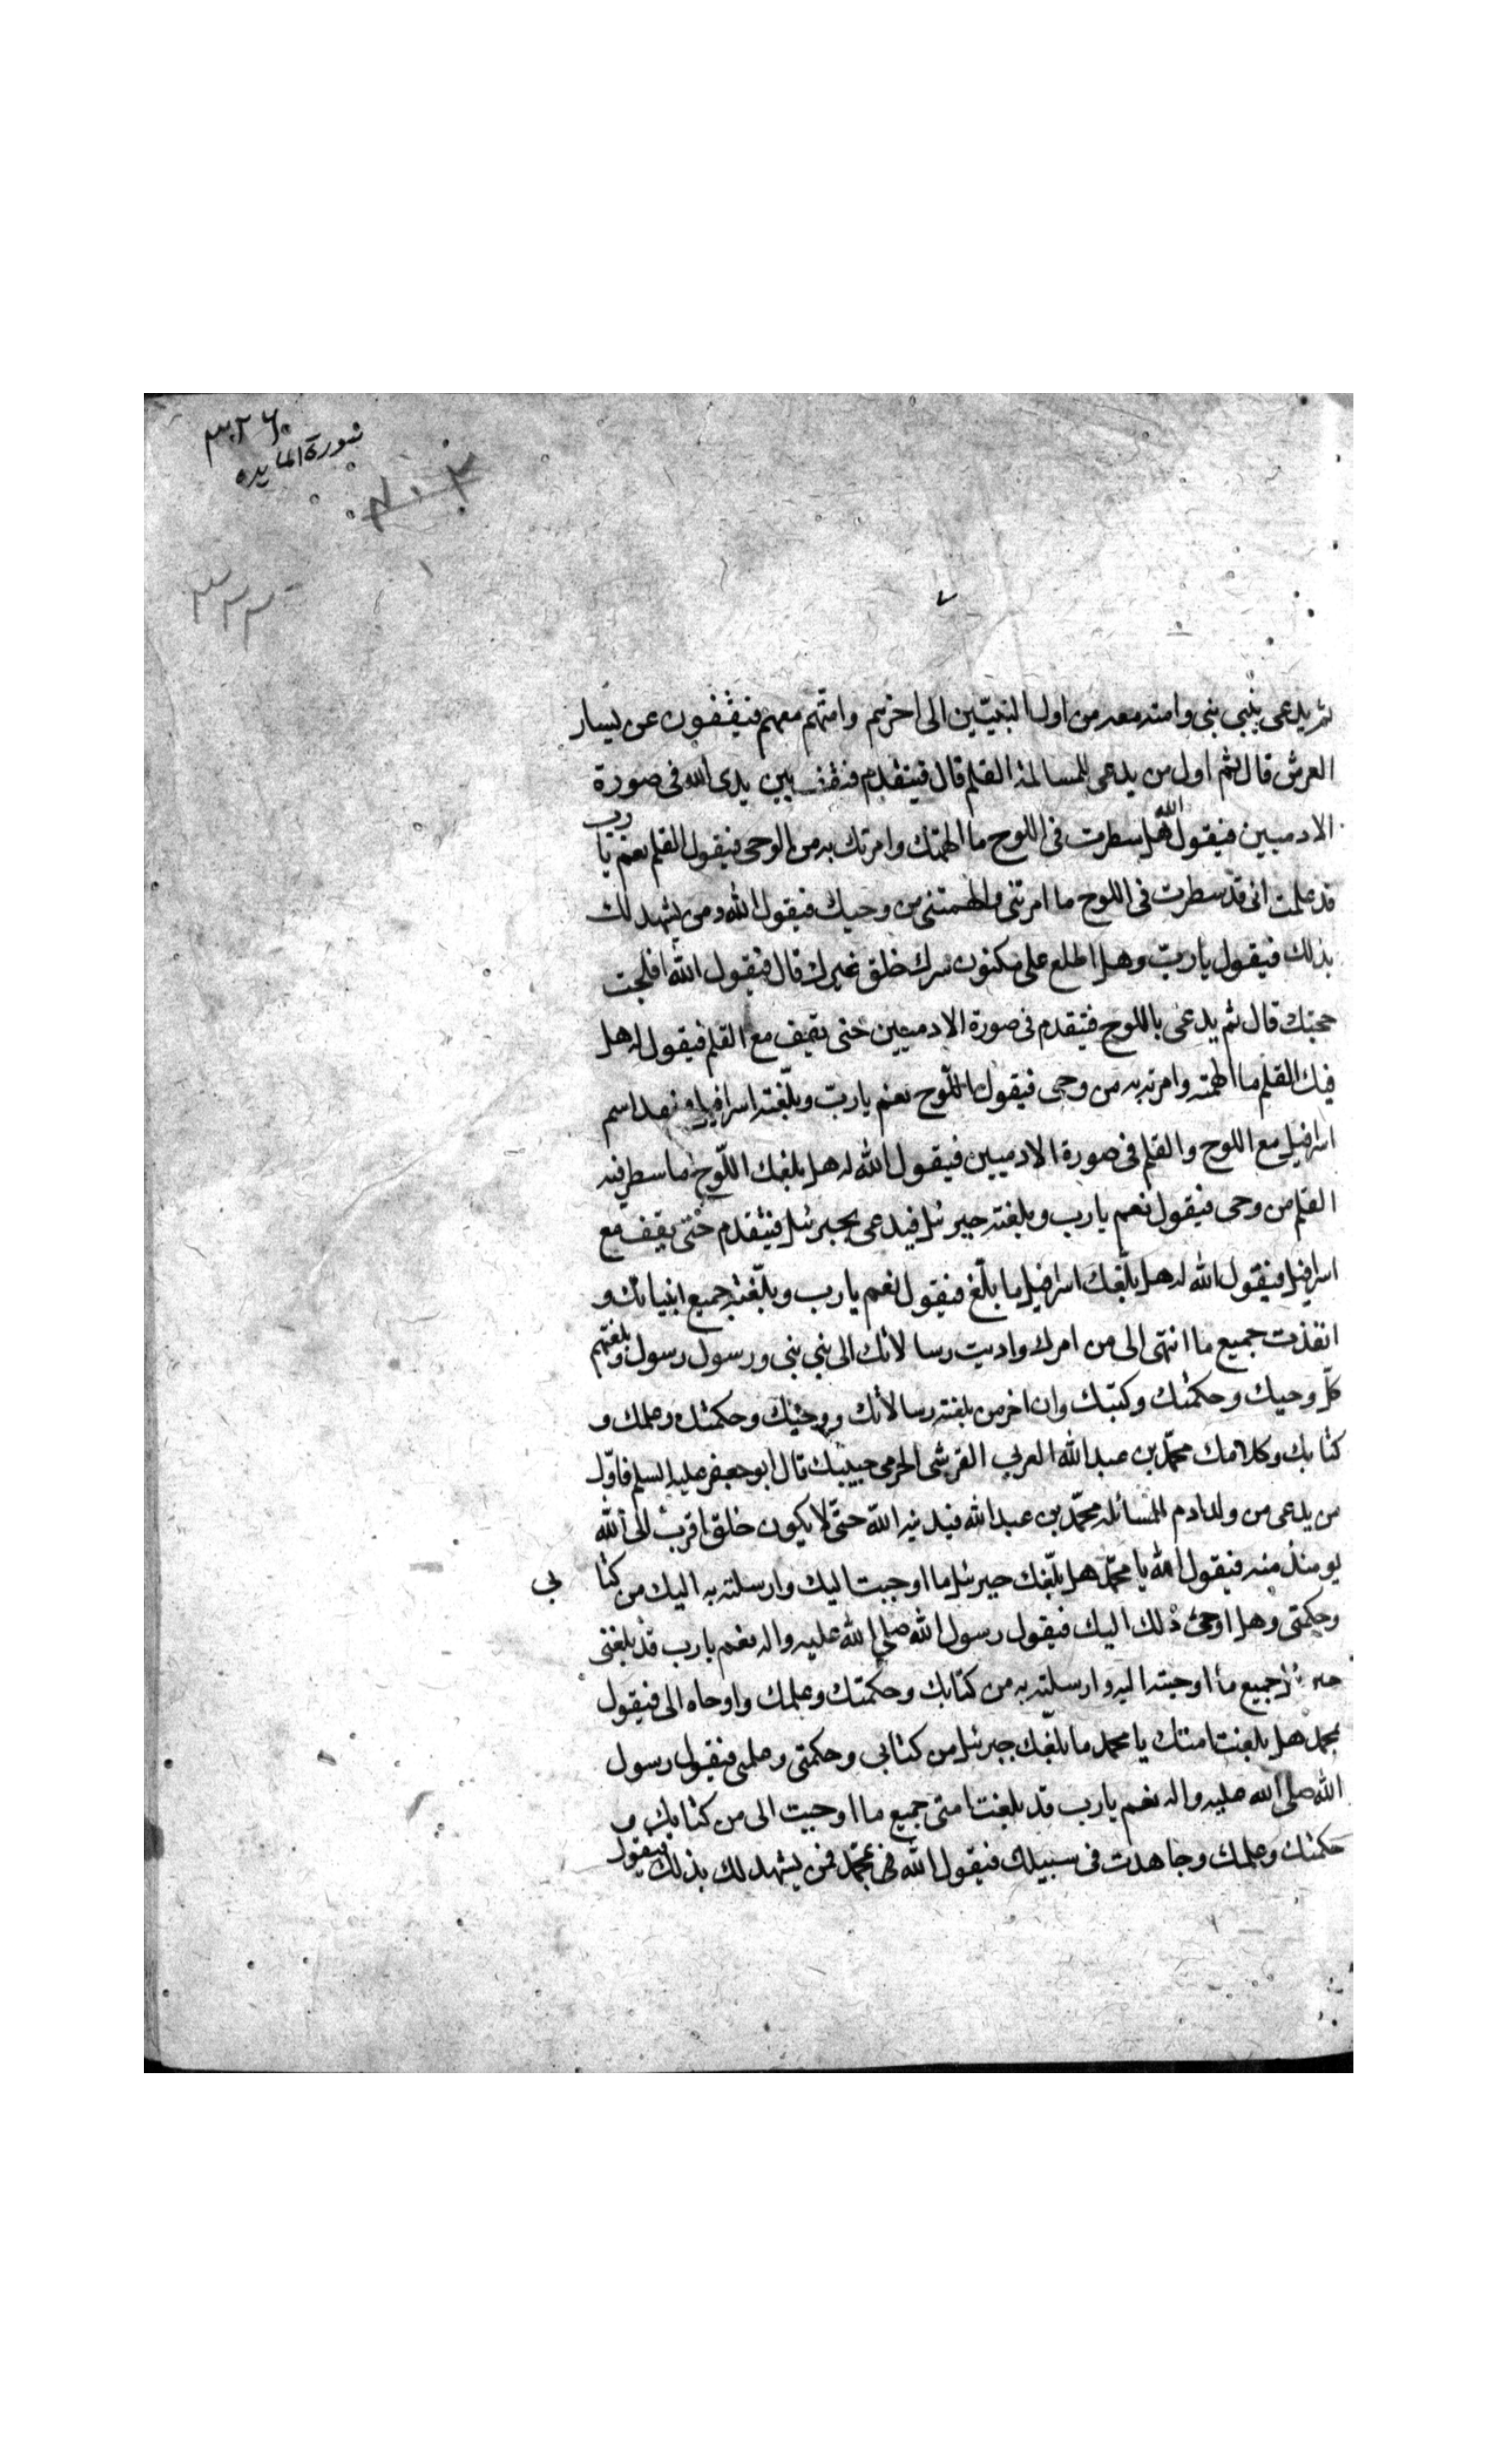 سورة المايده
ثم يدعى بنبي نبي وامته معه من اول النبيين الى اخرهم وامتهم معهم فيقفون عن يسار
العرش قال ثم اول من يدعى للمسالة القلم قال فيتقدم فيقف بين يدى الله فى صورة
الادميين فيقول الله هل سطرت فى اللوح ما الهمتك وامرتك به من الوحى فيقول القلم نعم يا رب
قد علمت انى قد سطرت فى اللوح ما امرتنى والهمتنى من وحيك فيقول الله ومن يشهد لك
بذلك فيقول يا رب وهل اطلع على مكنون سرك خلق غيرك قال فيقول الله افلجت
حجتك قال ثم يدعى باللوح فيتقدم فى صورة الادميين حتى يقف مع القلم فيقول له هل
فيك القلم ما الهمته وامرته به من وحى فيقول اللوح نعم يا رب وبلغته اسرافيل
اسرافيل مع اللوح والقلم فى صورة الادميين فيقول الله له هل بلغك اللوح ما سطر فيه
القلم من وحى فيقول نعم يا رب وبلغته جبرئيل فيدعى بجبرئيل فيتقدم حتى يقف مع
اسرافيل فيقول الله له هل بلغك اسرافيل ما بلغ فيقول نعم يا رب وبلغته جميع انبيائك و
انفذت جميع ما انتهى الى من امرك واديت رسالاتك الى نبى نبى ورسول رسول وبلغتهم
كل وحيك وحكمتك وكتبك وان اخر من بلغته رسالاتك ووحيك وحكمتك وعلمك و
كتابك وكلامك محمد بن عبد الله العربى القرشى الحرمى حبيبك قال ابو جعفر عليه السلم فاول
من يدعى من ولد ادم للمسائله محمد بن عبد الله فيدنيه الله حتى لا يكون خلق اقرب الى الله
يومئذ منه فيقول الله يا محمد هل بلغك جبرئيل ما اوحيت اليك وارسلته به اليك من كتا بى
وحكمتى وهل اوحى ذلك اليك فيقول رسول الله صلى الله عليه واله نعم يا رب قد بلغنى
جبرئيل جميع ما اوحيته اليه وارسلته به من كتابك وحكمتك وعلمك واوحاه الى فيقول
لمحمد هل بلغت امتك يا محمد ما بلغك جبرئيل من كتابى وحكمتى وعلمى فيقول رسول
الله صلى الله عليه واله نعم يا رب قد بلغت امتى جميع ما اوحيت الى من كتابك و
حكمتك وعلمك وجاهدت فى سبيلك فيقول الله لمحمد فمن يشهد لك بذلك فيقول